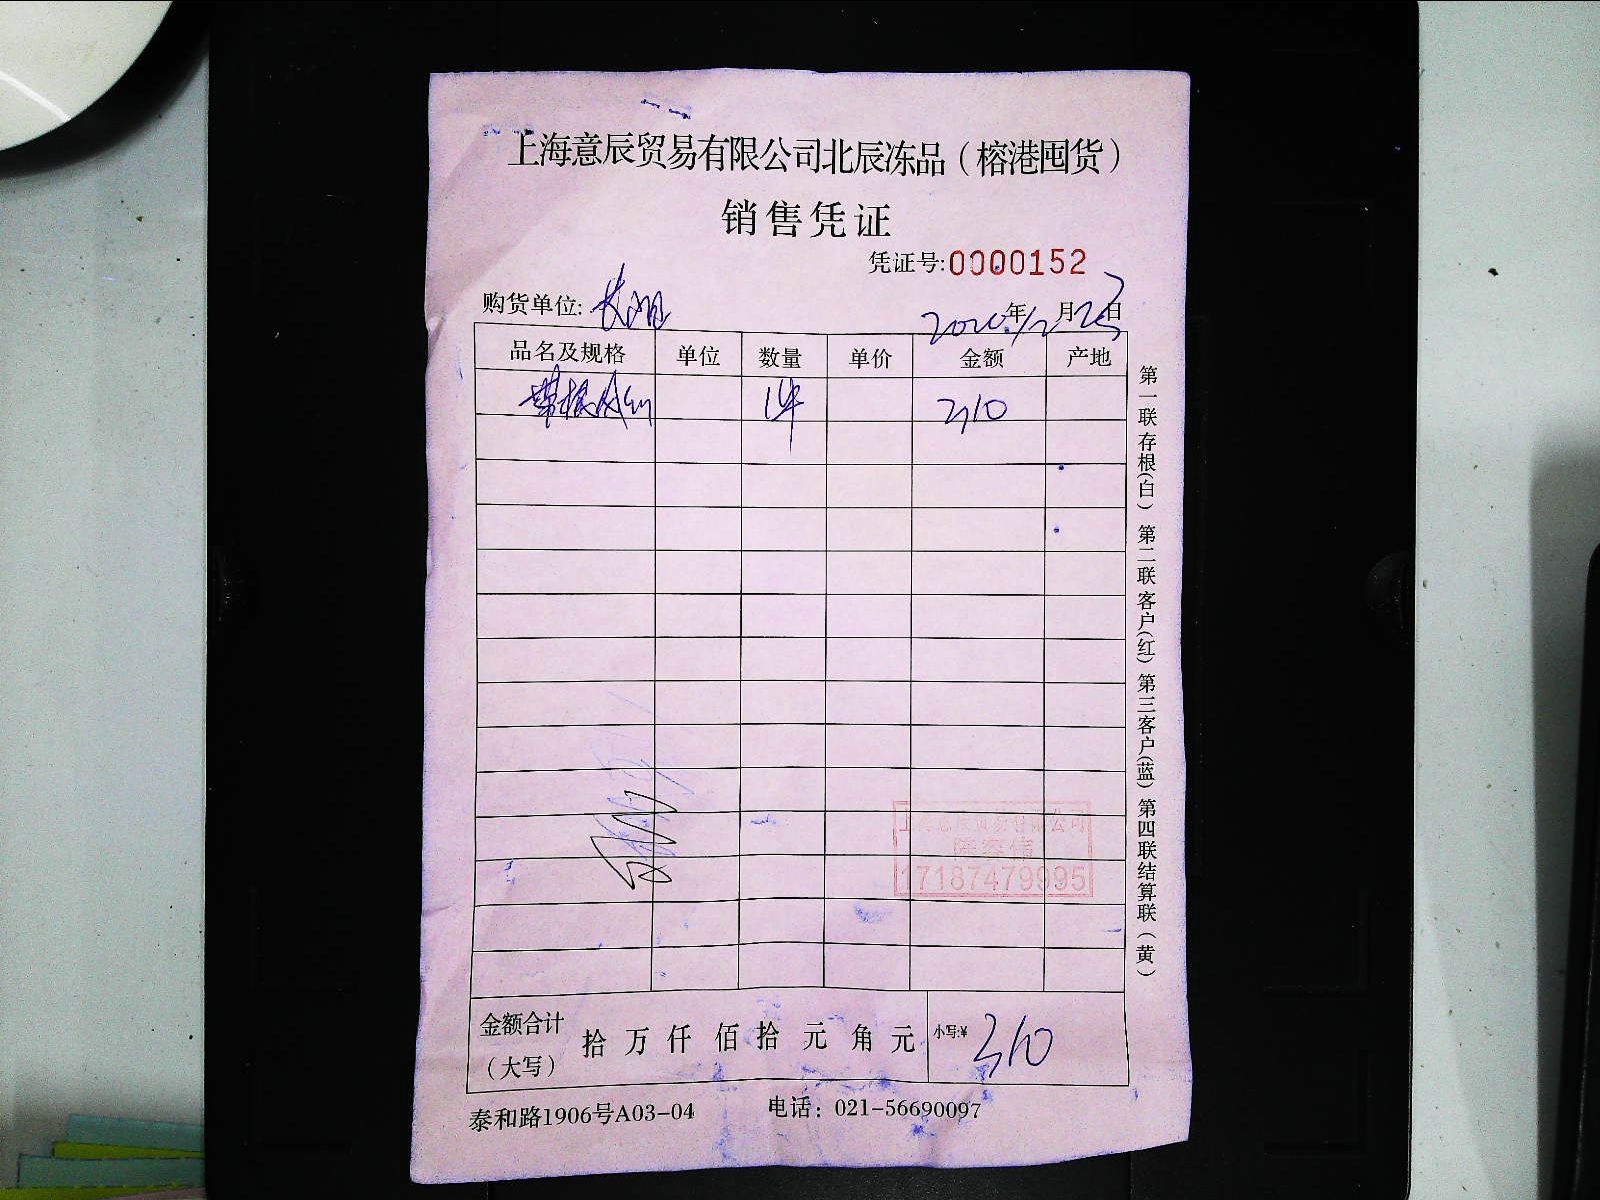 上海意辰贸易有限公司北辰冻品（榕港囤货）
销售凭证
凭证号:0000152
购货单位:
2020年12月23日
品名及规格 单位 数量 单价 金额 产地
1件 310
第一联存根(白) 第二联客户(红) 第三客户(蓝) 第四联结算联(黄)
17187479995
金额合计（大写） 拾 万 仟 佰 拾 元 角 元 小写:¥ 310
泰和路1906号A03-04 电话：021-56690097